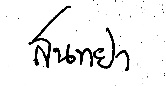 สนทยา